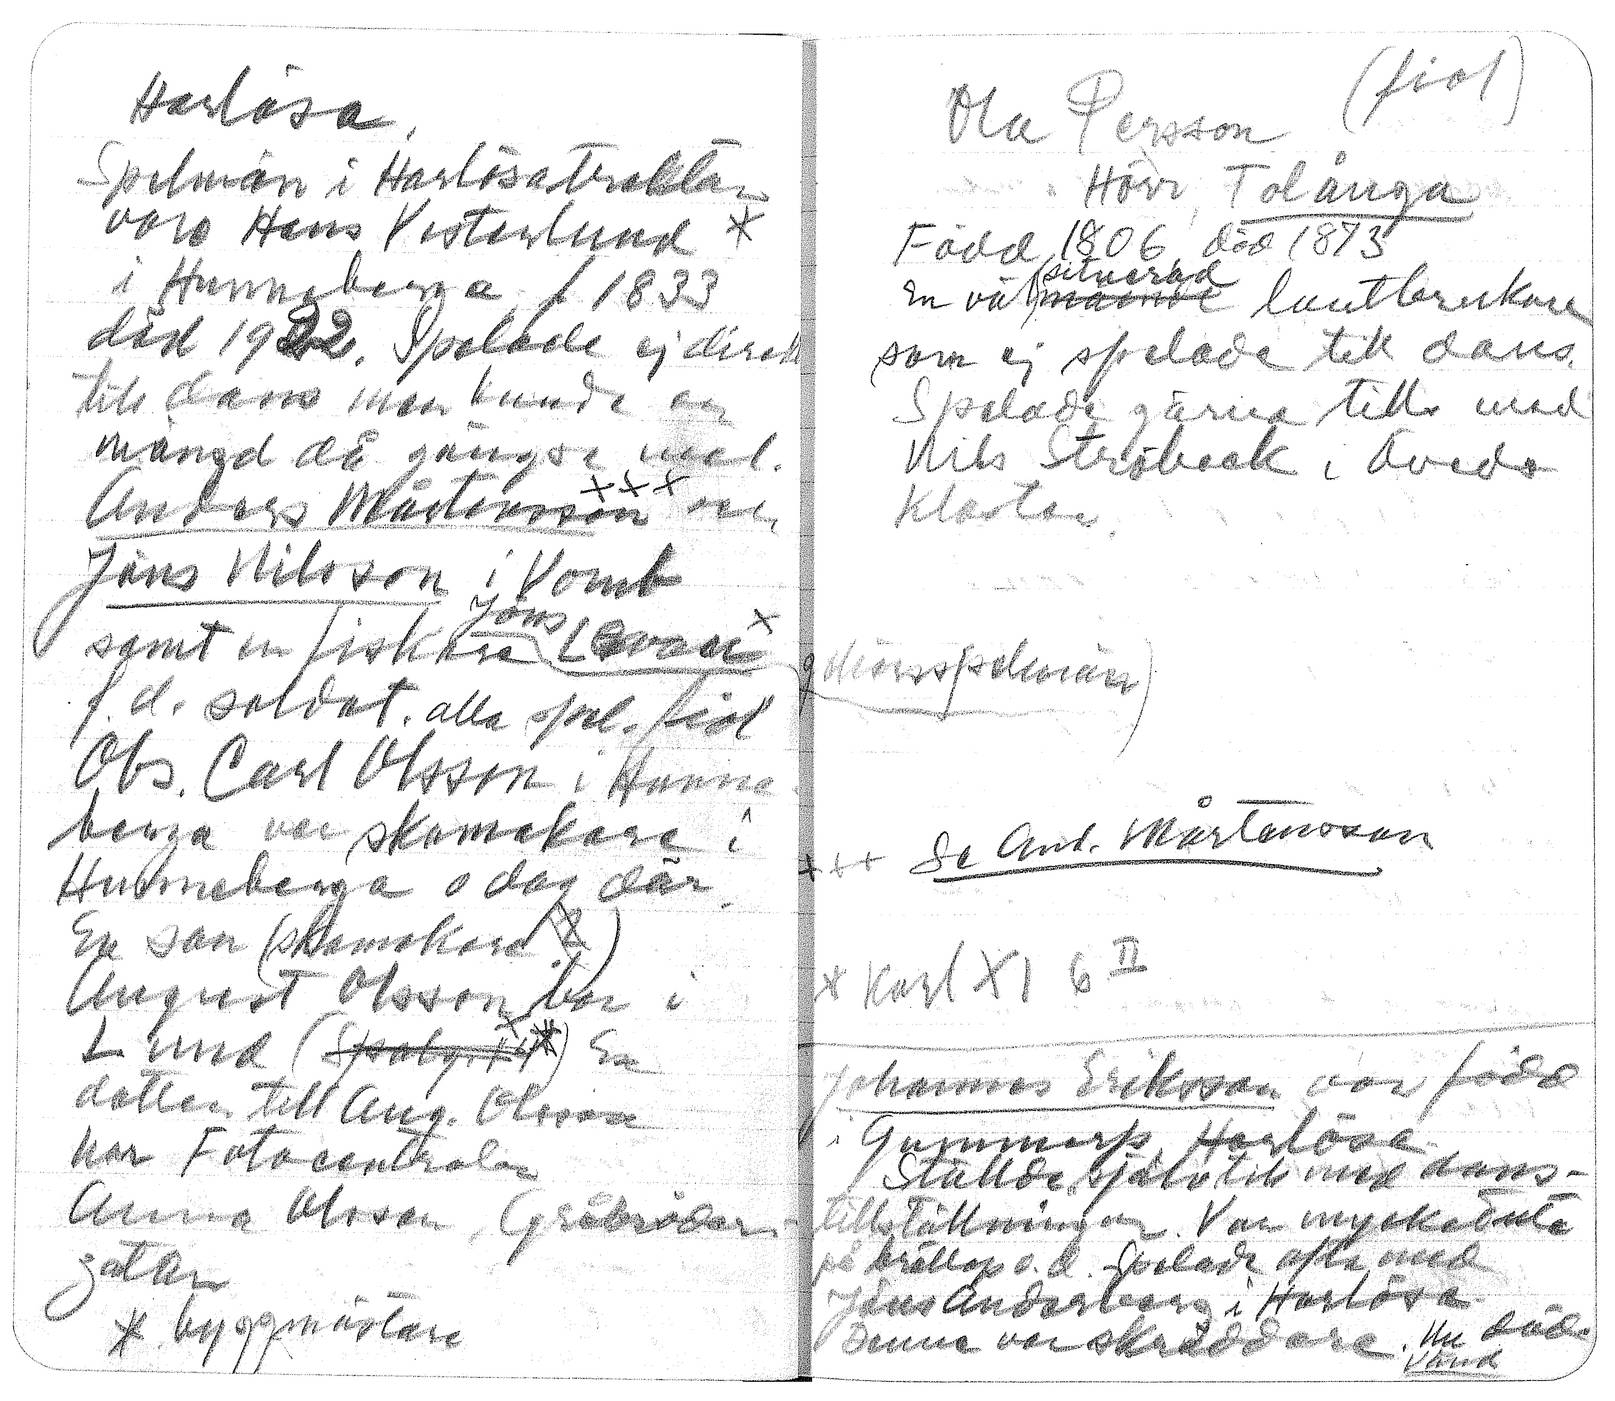 Harlösa.
Spelmän i Harlösatrakten
voro Hans Vesterlund *
i Hunneberga f 1833
död 1922. Spelade ej direkt
till dans men kunde en
mängd då gängse mel.
Anders Mårtensson +++ och
Jöns Nilsson i Vomb
samt en fiskare Jöns Levau x
f.d. soldat. alla spel. fiol
Obs. Carl Olsson i Hunne-
berga var skomakare i
Hunneberga o dog där.
En son (skomakare)
August Olsson bor i
Lund ( ) En
dotter till Aug. Olsson
har Fotocentralen
Anna Olsson, Gråbröder-
gatan
* byggmästare
Ola Persson (fiol)
Hörr, Tolånga
Född 1806 död 1873
En väl situerad lantbrukare
som ej spelade till dans.
Spelade gärna till med
Nils Ströbeck i Öveds
Kloster.
spelmän)
+++ Se And. Mårtensson
* Karl XI 6 II
Johannes Eriksson var född
i Gummarp, Harlösa.
Ställde själv till med dans-
tillställningar. Var mycket ute
på bröllop o.d. Spelade ofta med
Jöns Anderberg i Harlösa.
Denne var skräddare. Nu död.
Vänd